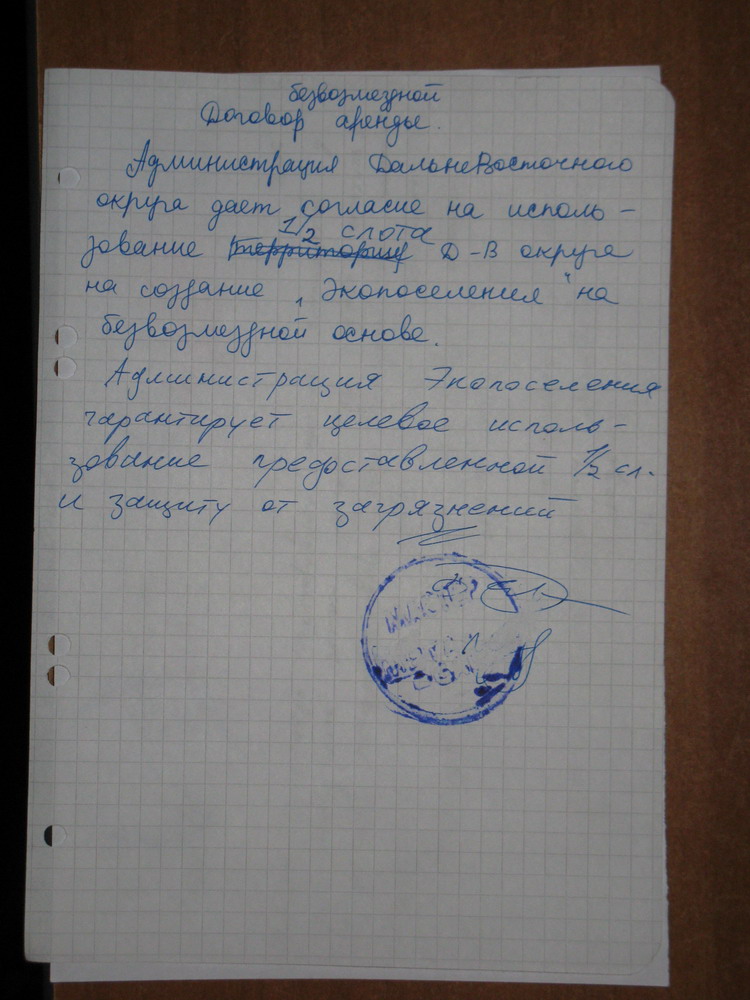 безвозмездной
Договор аренды.
Администрация ДальнеВосточного
округа дает согласие на исполь-
1/2 слота
зование территории Д-В округа
на создание „Экопоселения" на
безвозмездной основе.
Администрация Экопоселения
гарантирует целевое исполь-
зование предоставленной 1/2 сл.
и защиту от загрязнений